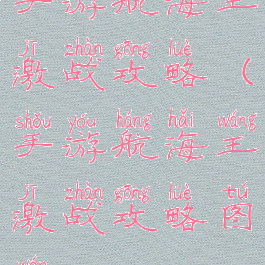 手游航海王
jī zhàn gōng lüè
激战攻略（
shǒu yóu háng hǎi wáng
手游航海王
jī zhàn gōng lüè tú
激战攻略图